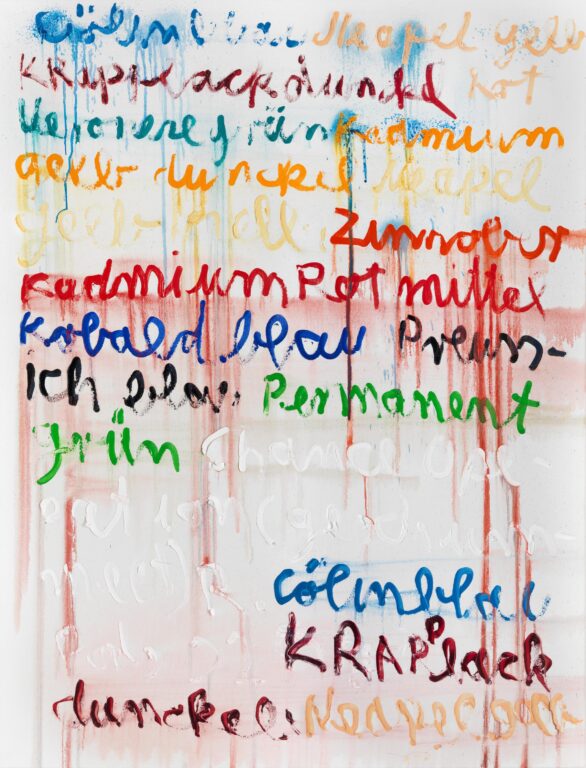 Cölinblau Neapel gelb
KRapplackdunckel rot
Veroneregrünkadmium
gelb dunckel Neapel
gelb hell, Zinnober
kadmium Rot mittel
kobald blau Preuss-
ich blau. Permanent
grün Chance Ope-
ration (
R.
cölinblau
KRAPPlack
dunckel: Neapel gelb